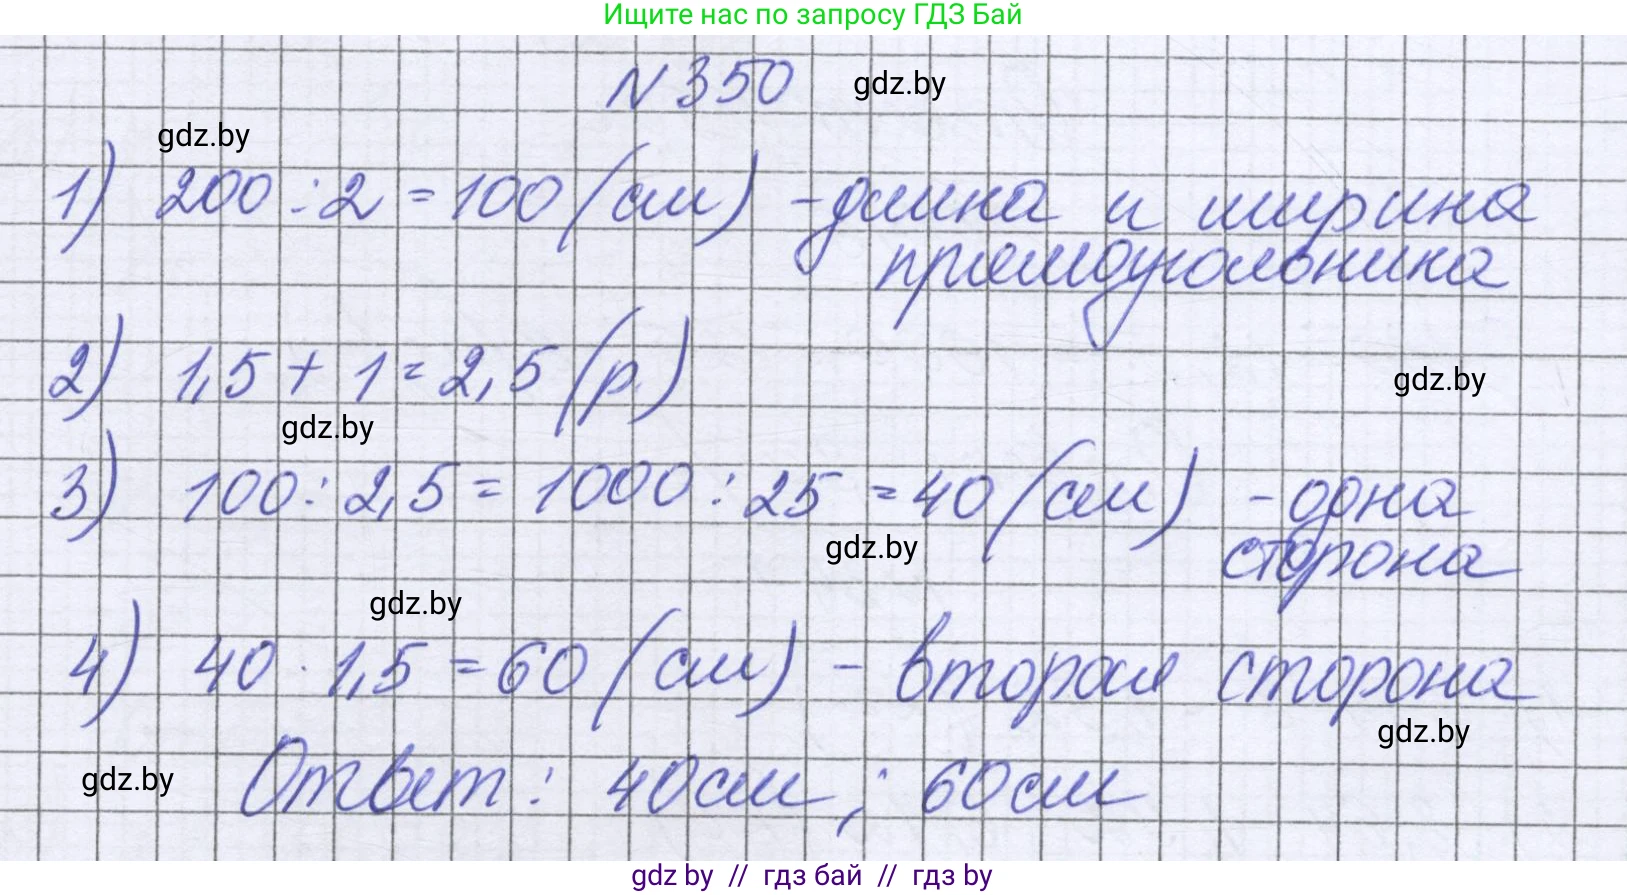 Ищите нас по запросу ГДЗ Бай
N 350 gdz.by
gdz.by
1) 200 : 2 = 100 (см) - длина и ширина
прямоугольника
2) 1,5 + 1 = 2,5 (р.)
gdz.by
gdz.by
3) 100 : 2,5 = 1000 : 25 = 40 (см) - одна
сторона
gdz.by
gdz.by
4) 40 · 1,5 = 60 (см) - вторая сторона
gdz.by
gdz.by
Ответ: 40см ; 60см
gdz by // гдз бай // гдз by